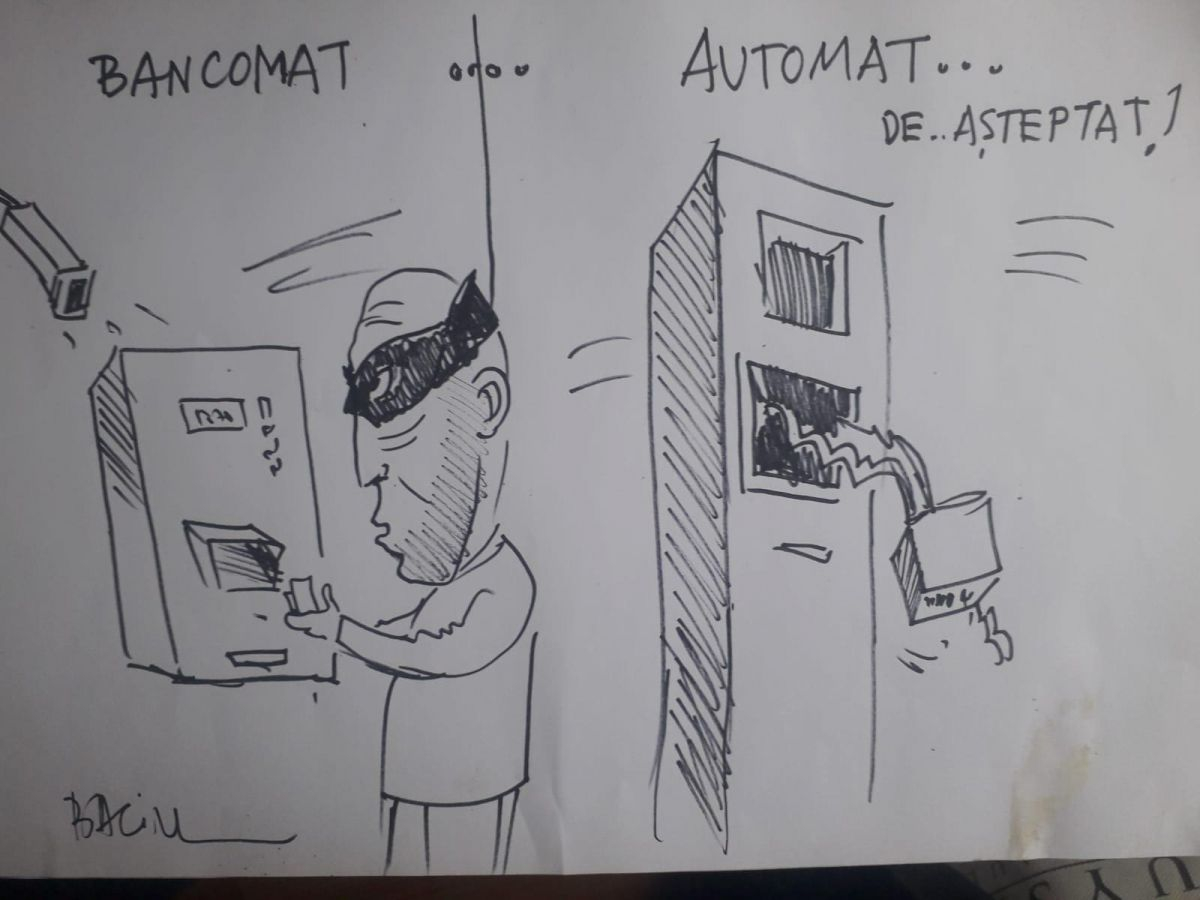 BANCOMAT ....
AUTOMAT...
DE..AȘTEPTAT!
BACIU